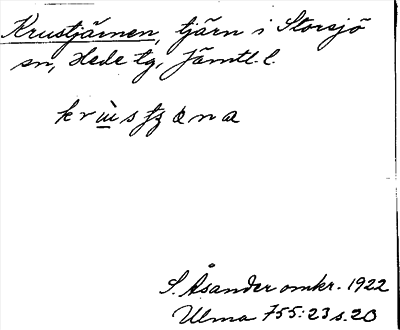 Krustjärnen, tjärn i Storsjö
sn, Hede tg, Jämtl. l.
S. Åsander omkr. 1922
Ulma 755:23 s. 20